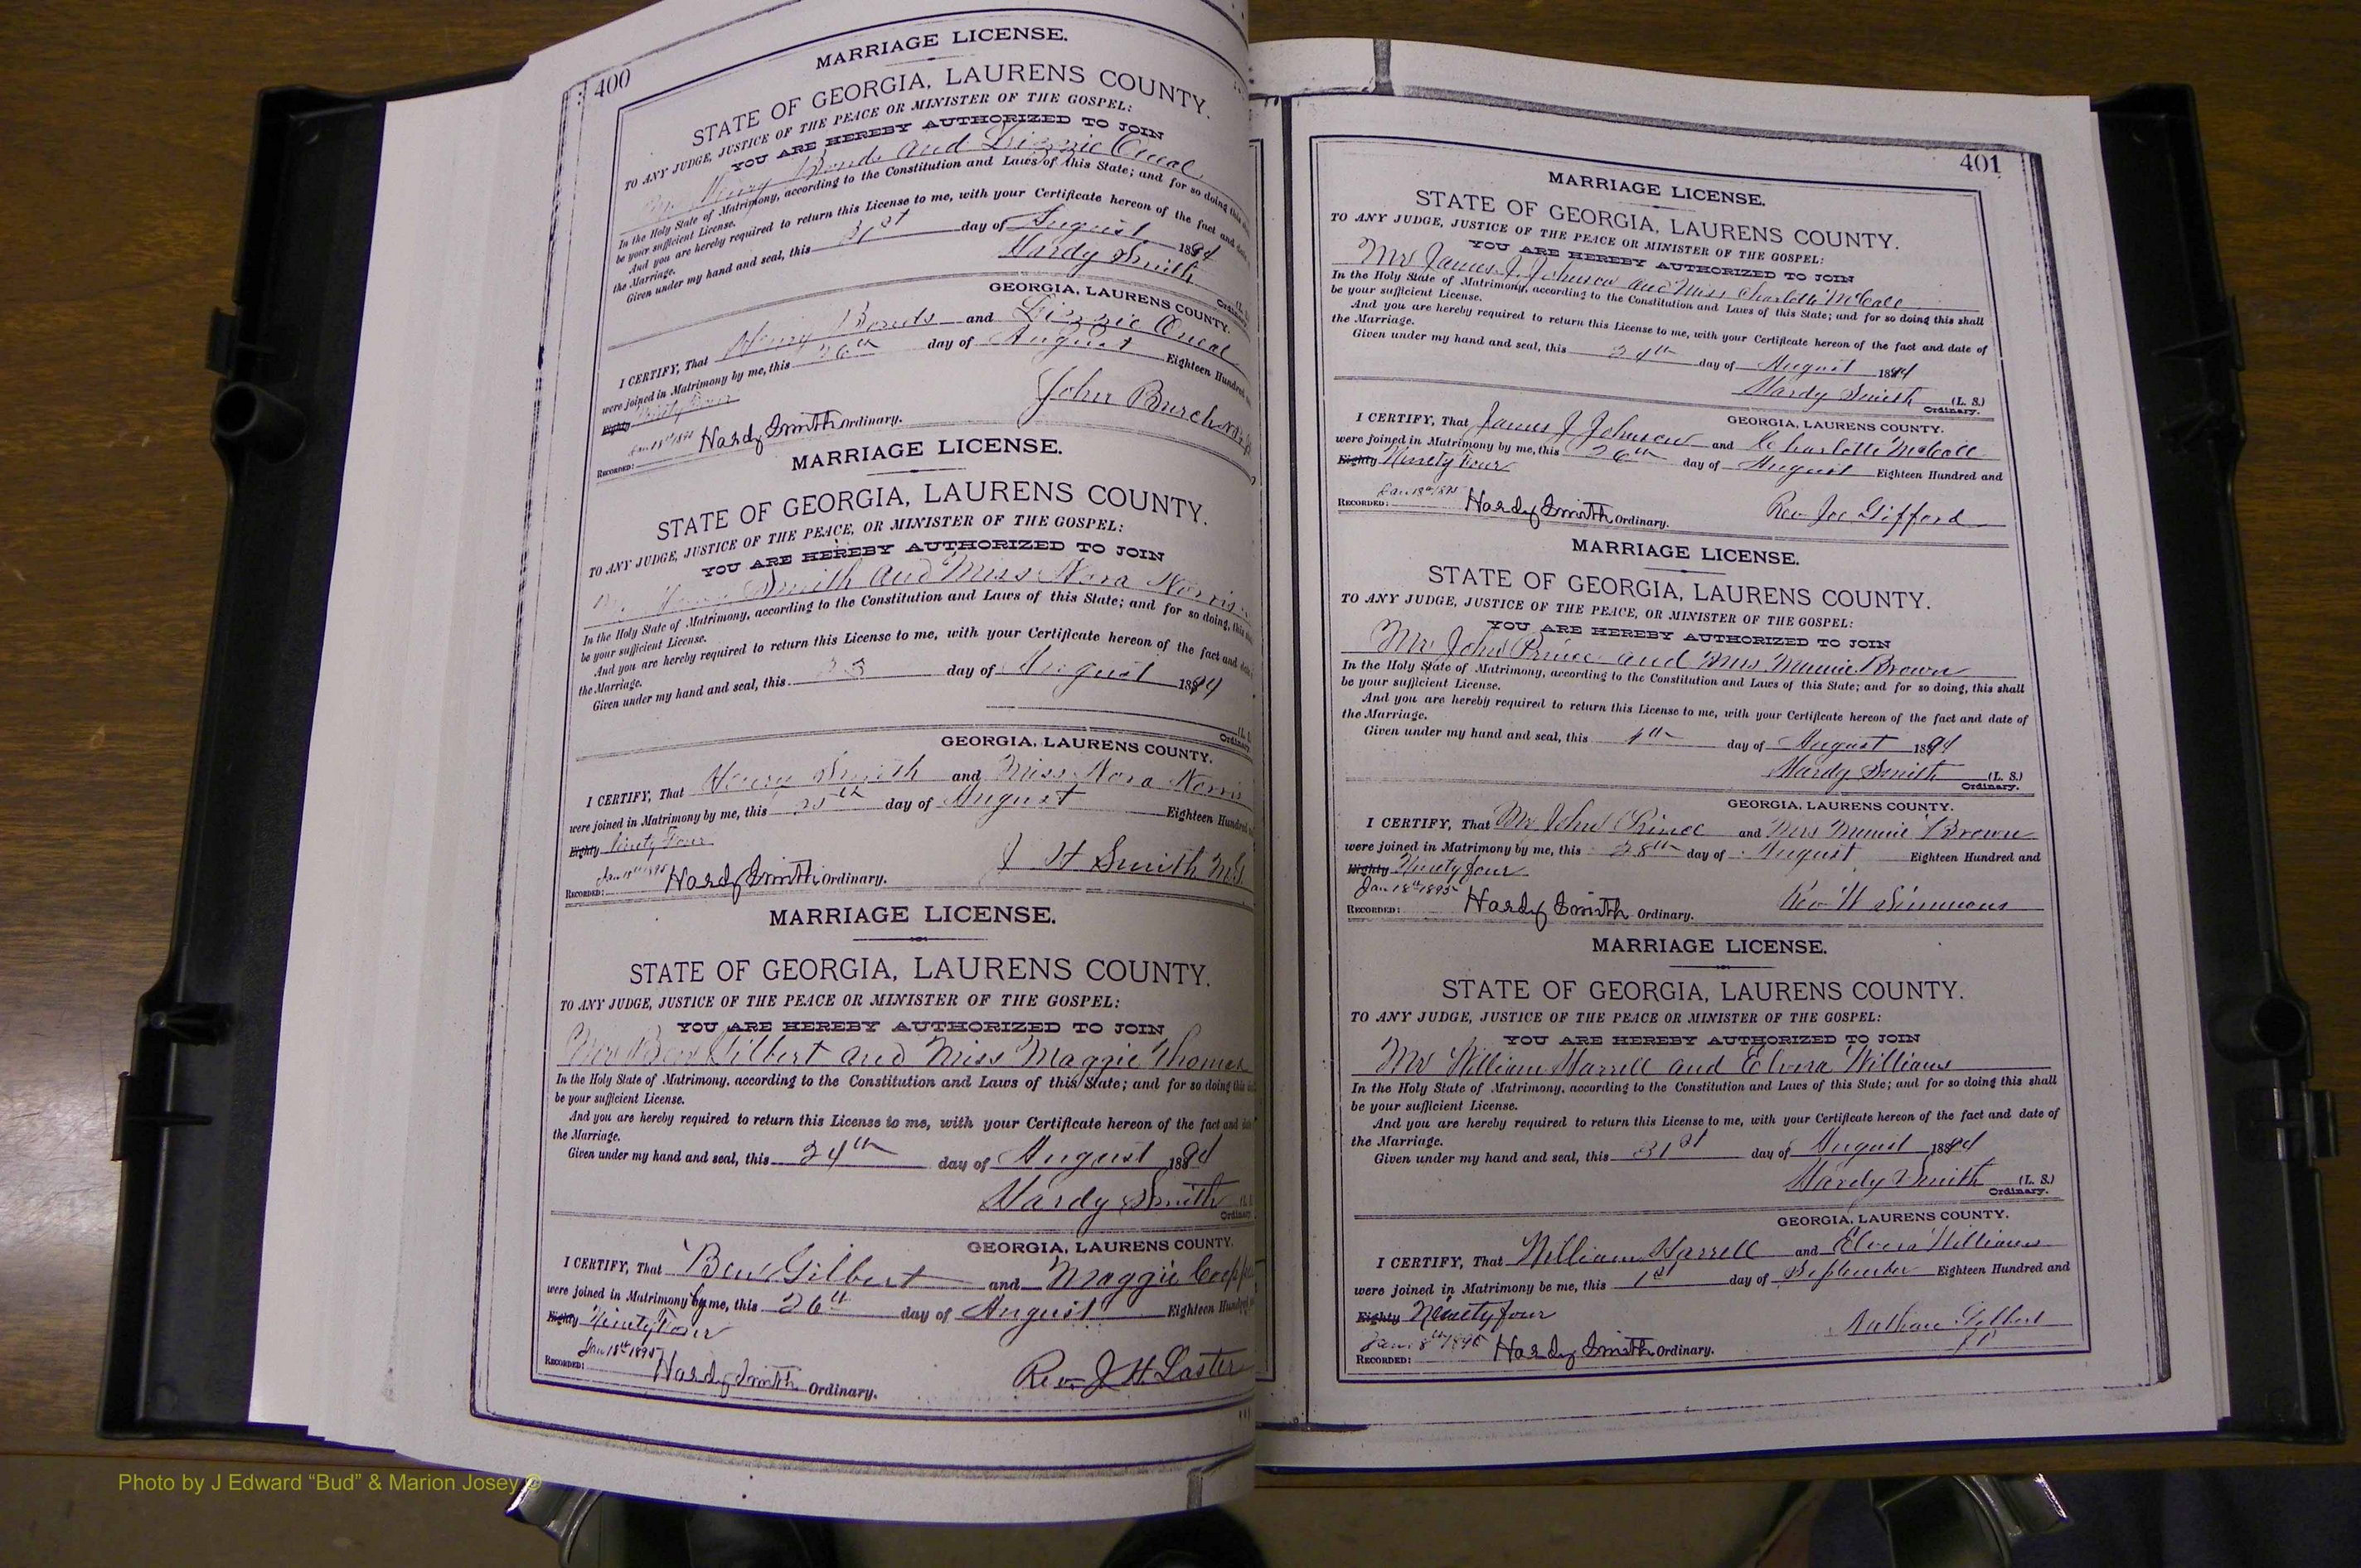 400
MARRIAGE LICENSE.
STATE OF GEORGIA, LAURENS COUNTY.
TO ANY JUDGE, JUSTICE OF THE PEACE OR MINISTER OF THE GOSPEL:
YOU ARE HEREBY AUTHORIZED TO JOIN
Mr Henry Bonds and Lizzie Oneal
In the Holy State of Matrimony, according to the Constitution and Laws of this State; and for so doing this
be your sufficient License.
And you are hereby required to return this License to me, with your Certificate hereon of the fact and date
the Marriage.
Given under my hand and seal, this 21st day of August 1894
Hardy Smith
Ordinary.
GEORGIA, LAURENS COUNTY.
I CERTIFY, That Henry Bonds and Lizzie Oneal
were joined in Matrimony by me, this 26th day of August Eighteen Hundred
Eighty Ninety Four
John Burch
RECORDED: Jan 18th 1895 Hardy Smith Ordinary.
MARRIAGE LICENSE.
STATE OF GEORGIA, LAURENS COUNTY.
TO ANY JUDGE, JUSTICE OF THE PEACE, OR MINISTER OF THE GOSPEL:
YOU ARE HEREBY AUTHORIZED TO JOIN
Mr Henry Smith and Miss Nora Norris
In the Holy State of Matrimony, according to the Constitution and Laws of this State; and for so doing, this
be your sufficient License.
And you are hereby required to return this License to me, with your Certificate hereon of the fact and date
the Marriage.
Given under my hand and seal, this 23 day of August 1894
Ordinary
GEORGIA, LAURENS COUNTY.
I CERTIFY, That Henry Smith and Miss Nora Norris
were joined in Matrimony by me, this 25th day of August Eighteen Hundred
Eighty Ninety Four
J H Smith M.G.
RECORDED: Jan 18th 1895 Hardy Smith Ordinary.
MARRIAGE LICENSE.
STATE OF GEORGIA, LAURENS COUNTY.
TO ANY JUDGE, JUSTICE OF THE PEACE OR MINISTER OF THE GOSPEL:
YOU ARE HEREBY AUTHORIZED TO JOIN
Mr Ben Gilbert and Miss Maggie Thomas
In the Holy State of Matrimony, according to the Constitution and Laws of this State; and for so doing this
be your sufficient License.
And you are hereby required to return this License to me, with your Certificate hereon of the fact and date
the Marriage.
Given under my hand and seal, this 24th day of August 1894
Hardy Smith
Ordinary
GEORGIA, LAURENS COUNTY.
I CERTIFY, That Ben Gilbert and Maggie
were joined in Matrimony by me, this 26th day of August Eighteen Hundred
Eighty Ninety Four
Jan 18th 1895
RECORDED: Hardy Smith Ordinary.
Rev J H Laster
401
MARRIAGE LICENSE.
STATE OF GEORGIA, LAURENS COUNTY.
TO ANY JUDGE, JUSTICE OF THE PEACE OR MINISTER OF THE GOSPEL:
YOU ARE HEREBY AUTHORIZED TO JOIN
Mr James J. Johnson and Miss Charlotte McCall
In the Holy State of Matrimony, according to the Constitution and Laws of this State; and for so doing this shall
be your sufficient License.
And you are hereby required to return this License to me, with your Certificate hereon of the fact and date of
the Marriage.
Given under my hand and seal, this 24th day of August 1894
Hardy Smith (L. S.)
Ordinary.
GEORGIA, LAURENS COUNTY.
I CERTIFY, That James J Johnson and Charlotte McCall
were joined in Matrimony by me, this 26th day of August Eighteen Hundred and
Eighty Ninety Four
Jan 18th 1895
RECORDED: Hardy Smith Ordinary. Rev Joe Gifford
MARRIAGE LICENSE.
STATE OF GEORGIA, LAURENS COUNTY.
TO ANY JUDGE, JUSTICE OF THE PEACE, OR MINISTER OF THE GOSPEL:
YOU ARE HEREBY AUTHORIZED TO JOIN
Mr John Prince and Mrs Mamie Brown
In the Holy State of Matrimony, according to the Constitution and Laws of this State; and for so doing, this shall
be your sufficient License.
And you are hereby required to return this License to me, with your Certificate hereon of the fact and date of
the Marriage.
Given under my hand and seal, this 4th day of August 1894
Hardy Smith (L. S.)
Ordinary.
GEORGIA, LAURENS COUNTY.
I CERTIFY, That Mr John Prince and Mrs Mamie Brown
were joined in Matrimony by me, this 28th day of August Eighteen Hundred and
Eighty Ninety four
Jan 18th 1895
RECORDED: Hardy Smith Ordinary. Rev W Simmons
MARRIAGE LICENSE.
STATE OF GEORGIA, LAURENS COUNTY.
TO ANY JUDGE, JUSTICE OF THE PEACE OR MINISTER OF THE GOSPEL:
YOU ARE HEREBY AUTHORIZED TO JOIN
Mr William Harrell and Elvira Williams
In the Holy State of Matrimony, according to the Constitution and Laws of this State; and for so doing this shall
be your sufficient License.
And you are hereby required to return this License to me, with your Certificate hereon of the fact and date of
the Marriage.
Given under my hand and seal, this 31st day of August 1894
Hardy Smith (L. S.)
Ordinary.
GEORGIA, LAURENS COUNTY.
I CERTIFY, That William Harrell and Elvira Williams
were joined in Matrimony be me, this 1st day of September Eighteen Hundred and
Eighty Ninety four
Nathan Gilbert
Jan 18th 1895
RECORDED: Hardy Smith Ordinary.
Photo by J Edward “Bud” & Marion Josey ©